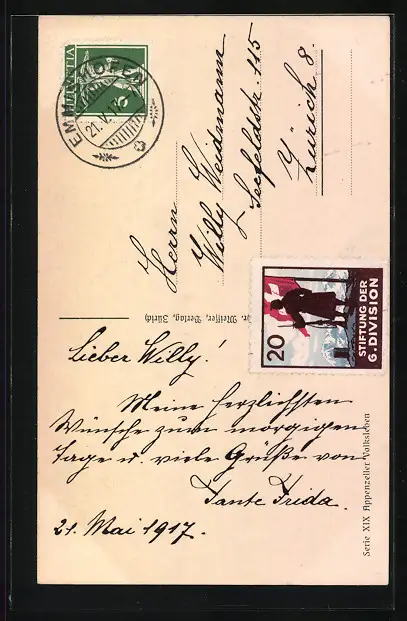 HELVETIA
EMMISHOFEN
21. V. 17
Herrn
Willy Weidmann
Seefeldstr. 115
Zürich 8.
Verlag, Zürich
20
STIFTUNG DER
6. DIVISION
Lieber Willy!
Meine herzlichsten
Wünsche zum morgigen
Tage u. viele Grüße von
Tante Frida.
21. Mai 1917.
Serie XIX Appenzeller Volksleben